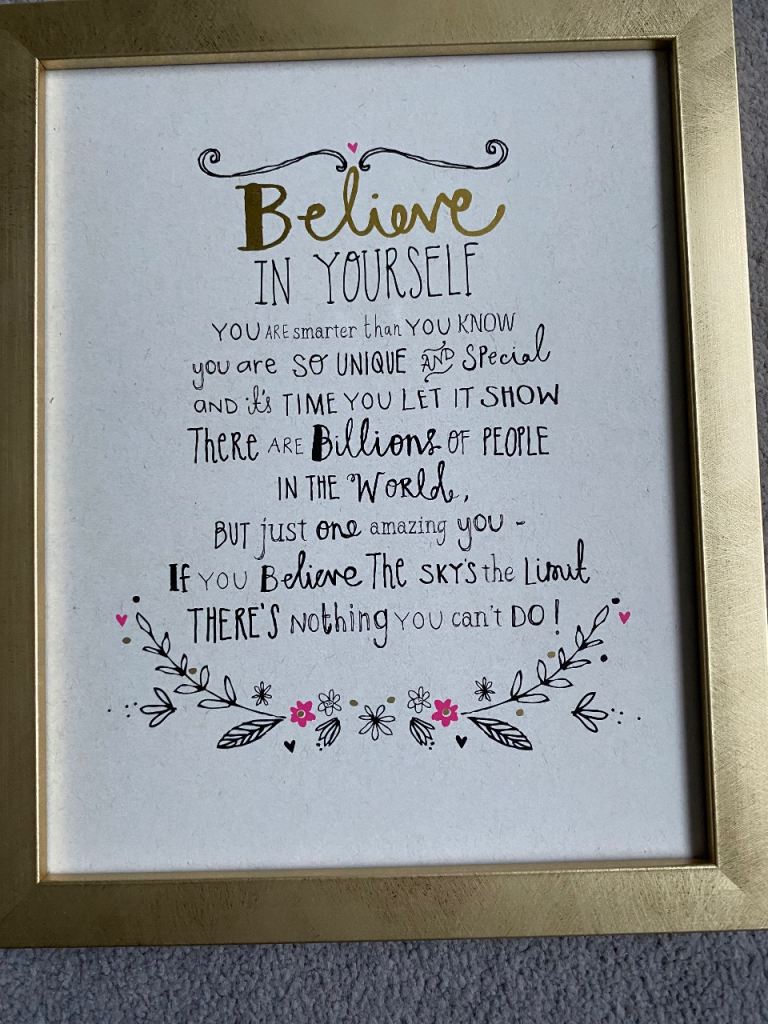 Believe
IN YOURSELF
YOU ARE smarter than YOU KNOW
you are SO UNIQUE AND Special
AND it's TIME YOU LET IT SHOW
THeRe ARE Billions OF PEOPLE
IN THE World,
BUT just one amazing you -
If YOU Believe The SKY'S the Limit
THERE'S Nothing YOU can't DO!